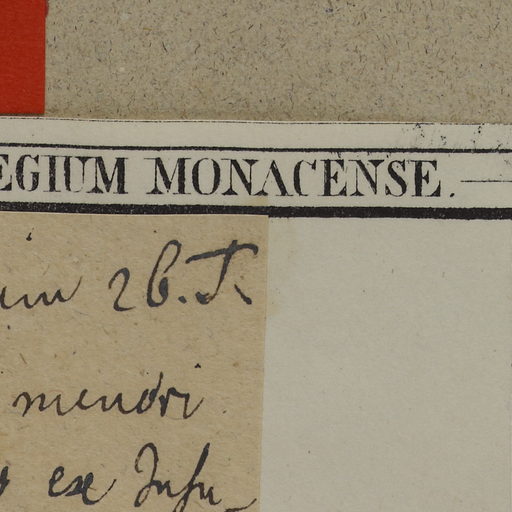 EGIUM MONACENSE.
um 26. T.
mendri
ex Insu-